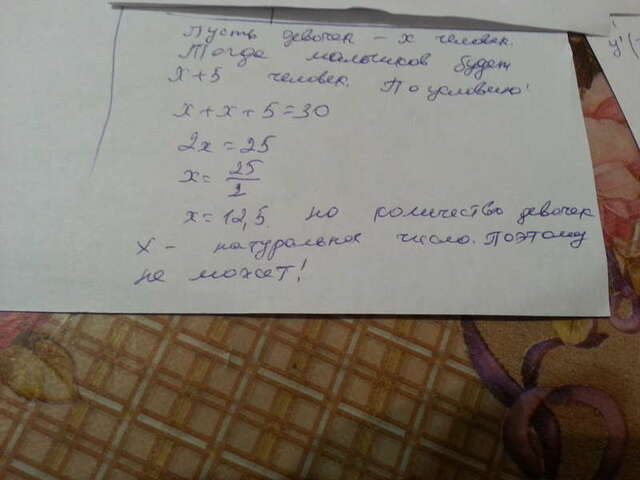 Пусть девочек – x человек.
Тогда мальчиков будет
x+5 человек. По условию:
x+x+5=30
2x=25
x=25/2
x=12,5. но количество девочек
x – натуральное число. Поэтому
не может!
y'(